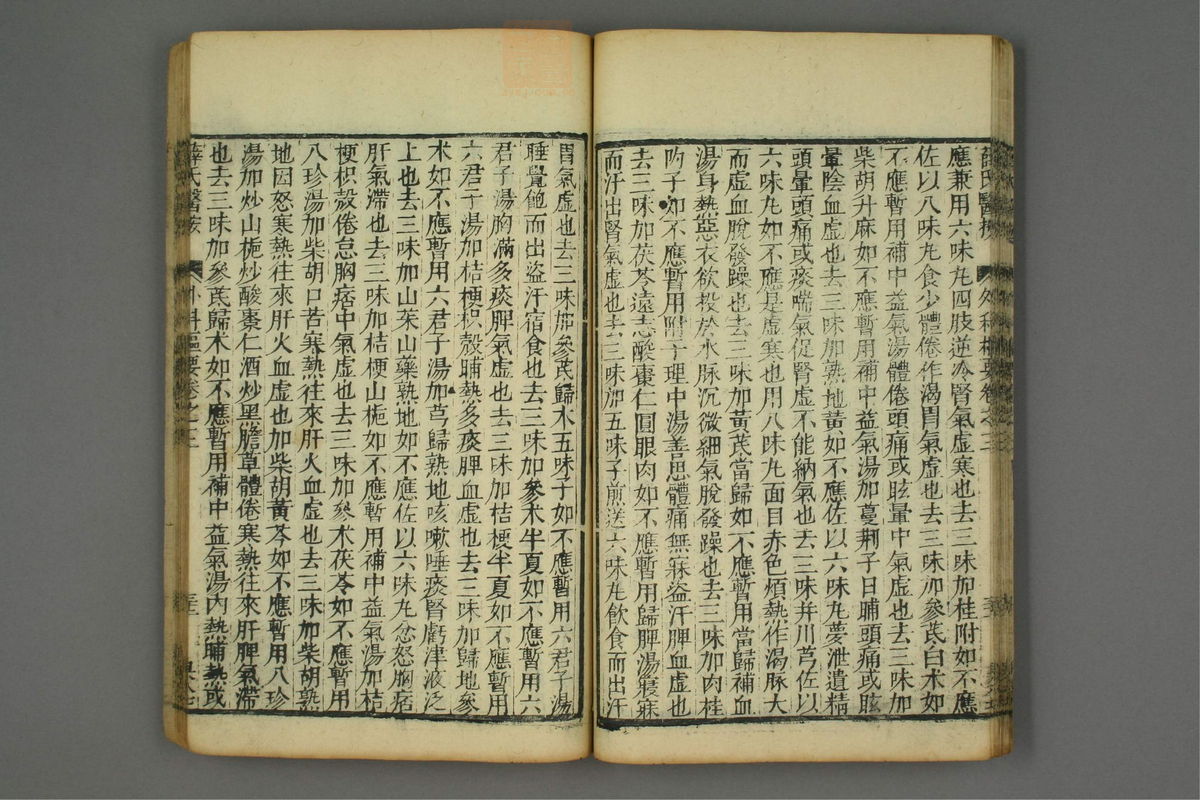 薛氏醫按 外科樞要卷之三
應兼用六味丸四肢逆冷腎氣虛寒也去三味加桂附如不應
佐以八味丸食少體倦作渴胃氣虛也去三味加參芪白朮如
不應暫用補中益氣湯體倦頭痛或眩暈中氣虛也去三味加
柴胡升麻如不應暫用補中益氣湯加蔓荆子日晡頭痛或眩
暈陰血虛也去三味加熟地黃如不應佐以六味丸夢泄遺精
頭暈頭痛或痰喘氣促腎虛不能納氣也去三味并川芎佐以
六味丸如不應是虛寒也用八味丸面目赤色煩熱作渴脉大
而虛血脫發躁也去三味加黃芪當歸如不應暫用當歸補血
湯身熱惡衣欲投於水脉沉微細氣脫發躁也去三味加肉桂
附子如不應暫用附子理中湯善思體痛無寐盜汗脾血虛也
去三味加茯苓遠志酸棗仁圓眼肉如不應暫用歸脾湯寢寐
而汗出腎氣虛也去三味加五味子煎送六味丸飲食而出汗
胃氣虛也去三味加參芪歸朮五味子如不應暫用六君子湯
睡覺飽而出盜汗宿食也去三味加參朮半夏如不應暫用六
君子湯胸滿多痰脾氣虛也去三味加桔梗半夏如不應暫用
六君子湯加桔梗枳殼晡熱多痰脾血虛也去三味加歸地參
朮如不應暫用六君子湯加芎歸熟地咳嗽唾痰腎虧津液泛
上也去三味加山茱山藥熟地如不應佐以六味丸忿怒胸痞
肝氣滯也去三味加桔梗山梔如不應暫用補中益氣湯加桔
梗枳殼倦怠胸痞中氣虛也去三味加參朮茯苓如不應暫用
八珍湯加柴胡口苦寒熱往來肝火血虛也去三味加柴胡熟
地因怒寒熱往來肝火血虛也加柴胡黃芩如不應暫用八珍
湯加炒山梔炒酸棗仁酒炒黑膽草體倦寒熱往來肝脾氣滯
也去三味加參芪歸朮如不應暫用補中益氣湯內熱晡熱或
薛氏醫按 外科樞要卷之三